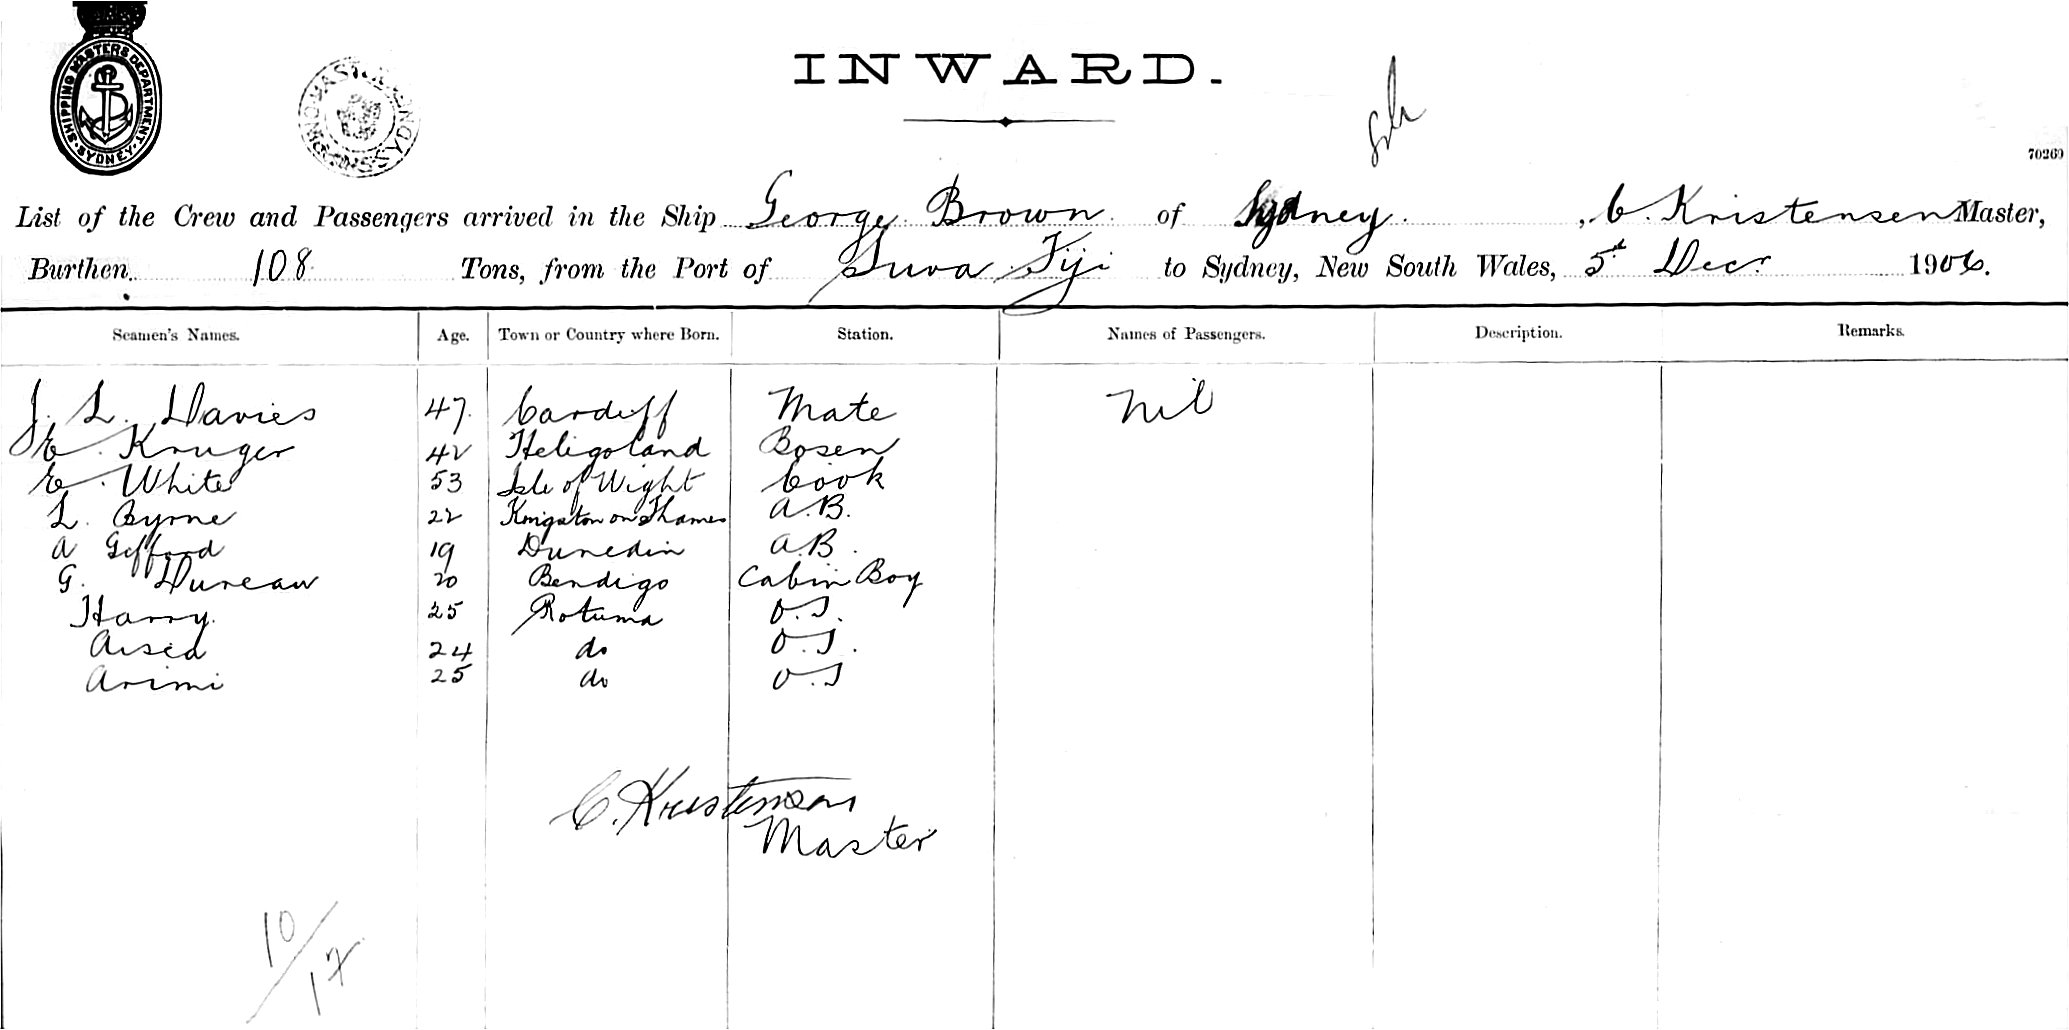 SHIPPING MASTERS DEPARTMENT. SYDNEY.
INWARD.
70260
List of the Crew and Passengers arrived in the Ship George Brown of Sydney, C. Kristensen Master,
Burthen 108 Tons, from the Port of Suva Fiji to Sydney, New South Wales, 5th Decr 1906.
Seamen's Names. Age. Town or Country where Born. Station. Names of Passengers. Description. Remarks.
J. L. Davies 47. Cardiff Mate Nil
E. Kruger 42 Heligoland Bosen
E. White 53 Isle of Wight Cook
L. Byrne 22 Kingston on Thames A.B.
A Gifford 19 Dunedin A.B.
G. Duncan 20 Bendigo Cabin Boy
Harry. 25 Rotuma O.S.
Aisea 24 do O.S.
Arimi 25 do O.S
C. Kristensen
Master
10/17